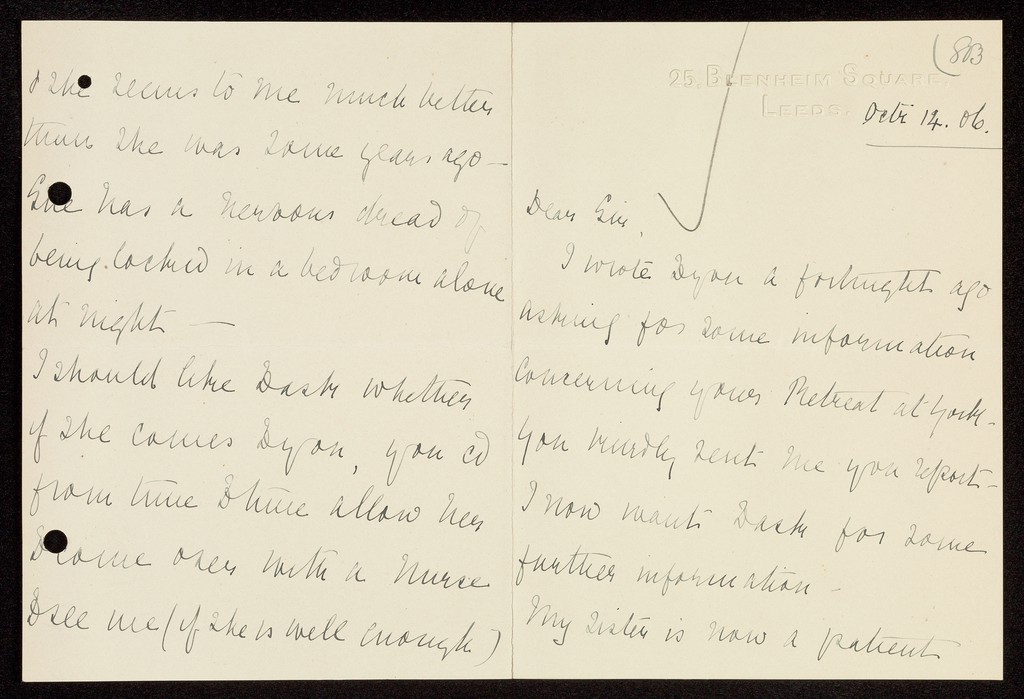 (803
25, BLENHEIM SQUARE,
LEEDS.
Octr 14. 06.
Dear Sir,
I wrote to you a fortnight ago
asking for some information
concerning your Retreat at York -
You kindly sent me you report -
I now want to ask for some
further information -
My sister is now a patient
& she seems to me much better
than she was some years ago -
She has a nervous dread of
being locked in a bedroom alone
at night -
I should like to ask whether
if she comes to you, you cd
from time to time allow her
to come over with a nurse
to see me (if she is well enough)